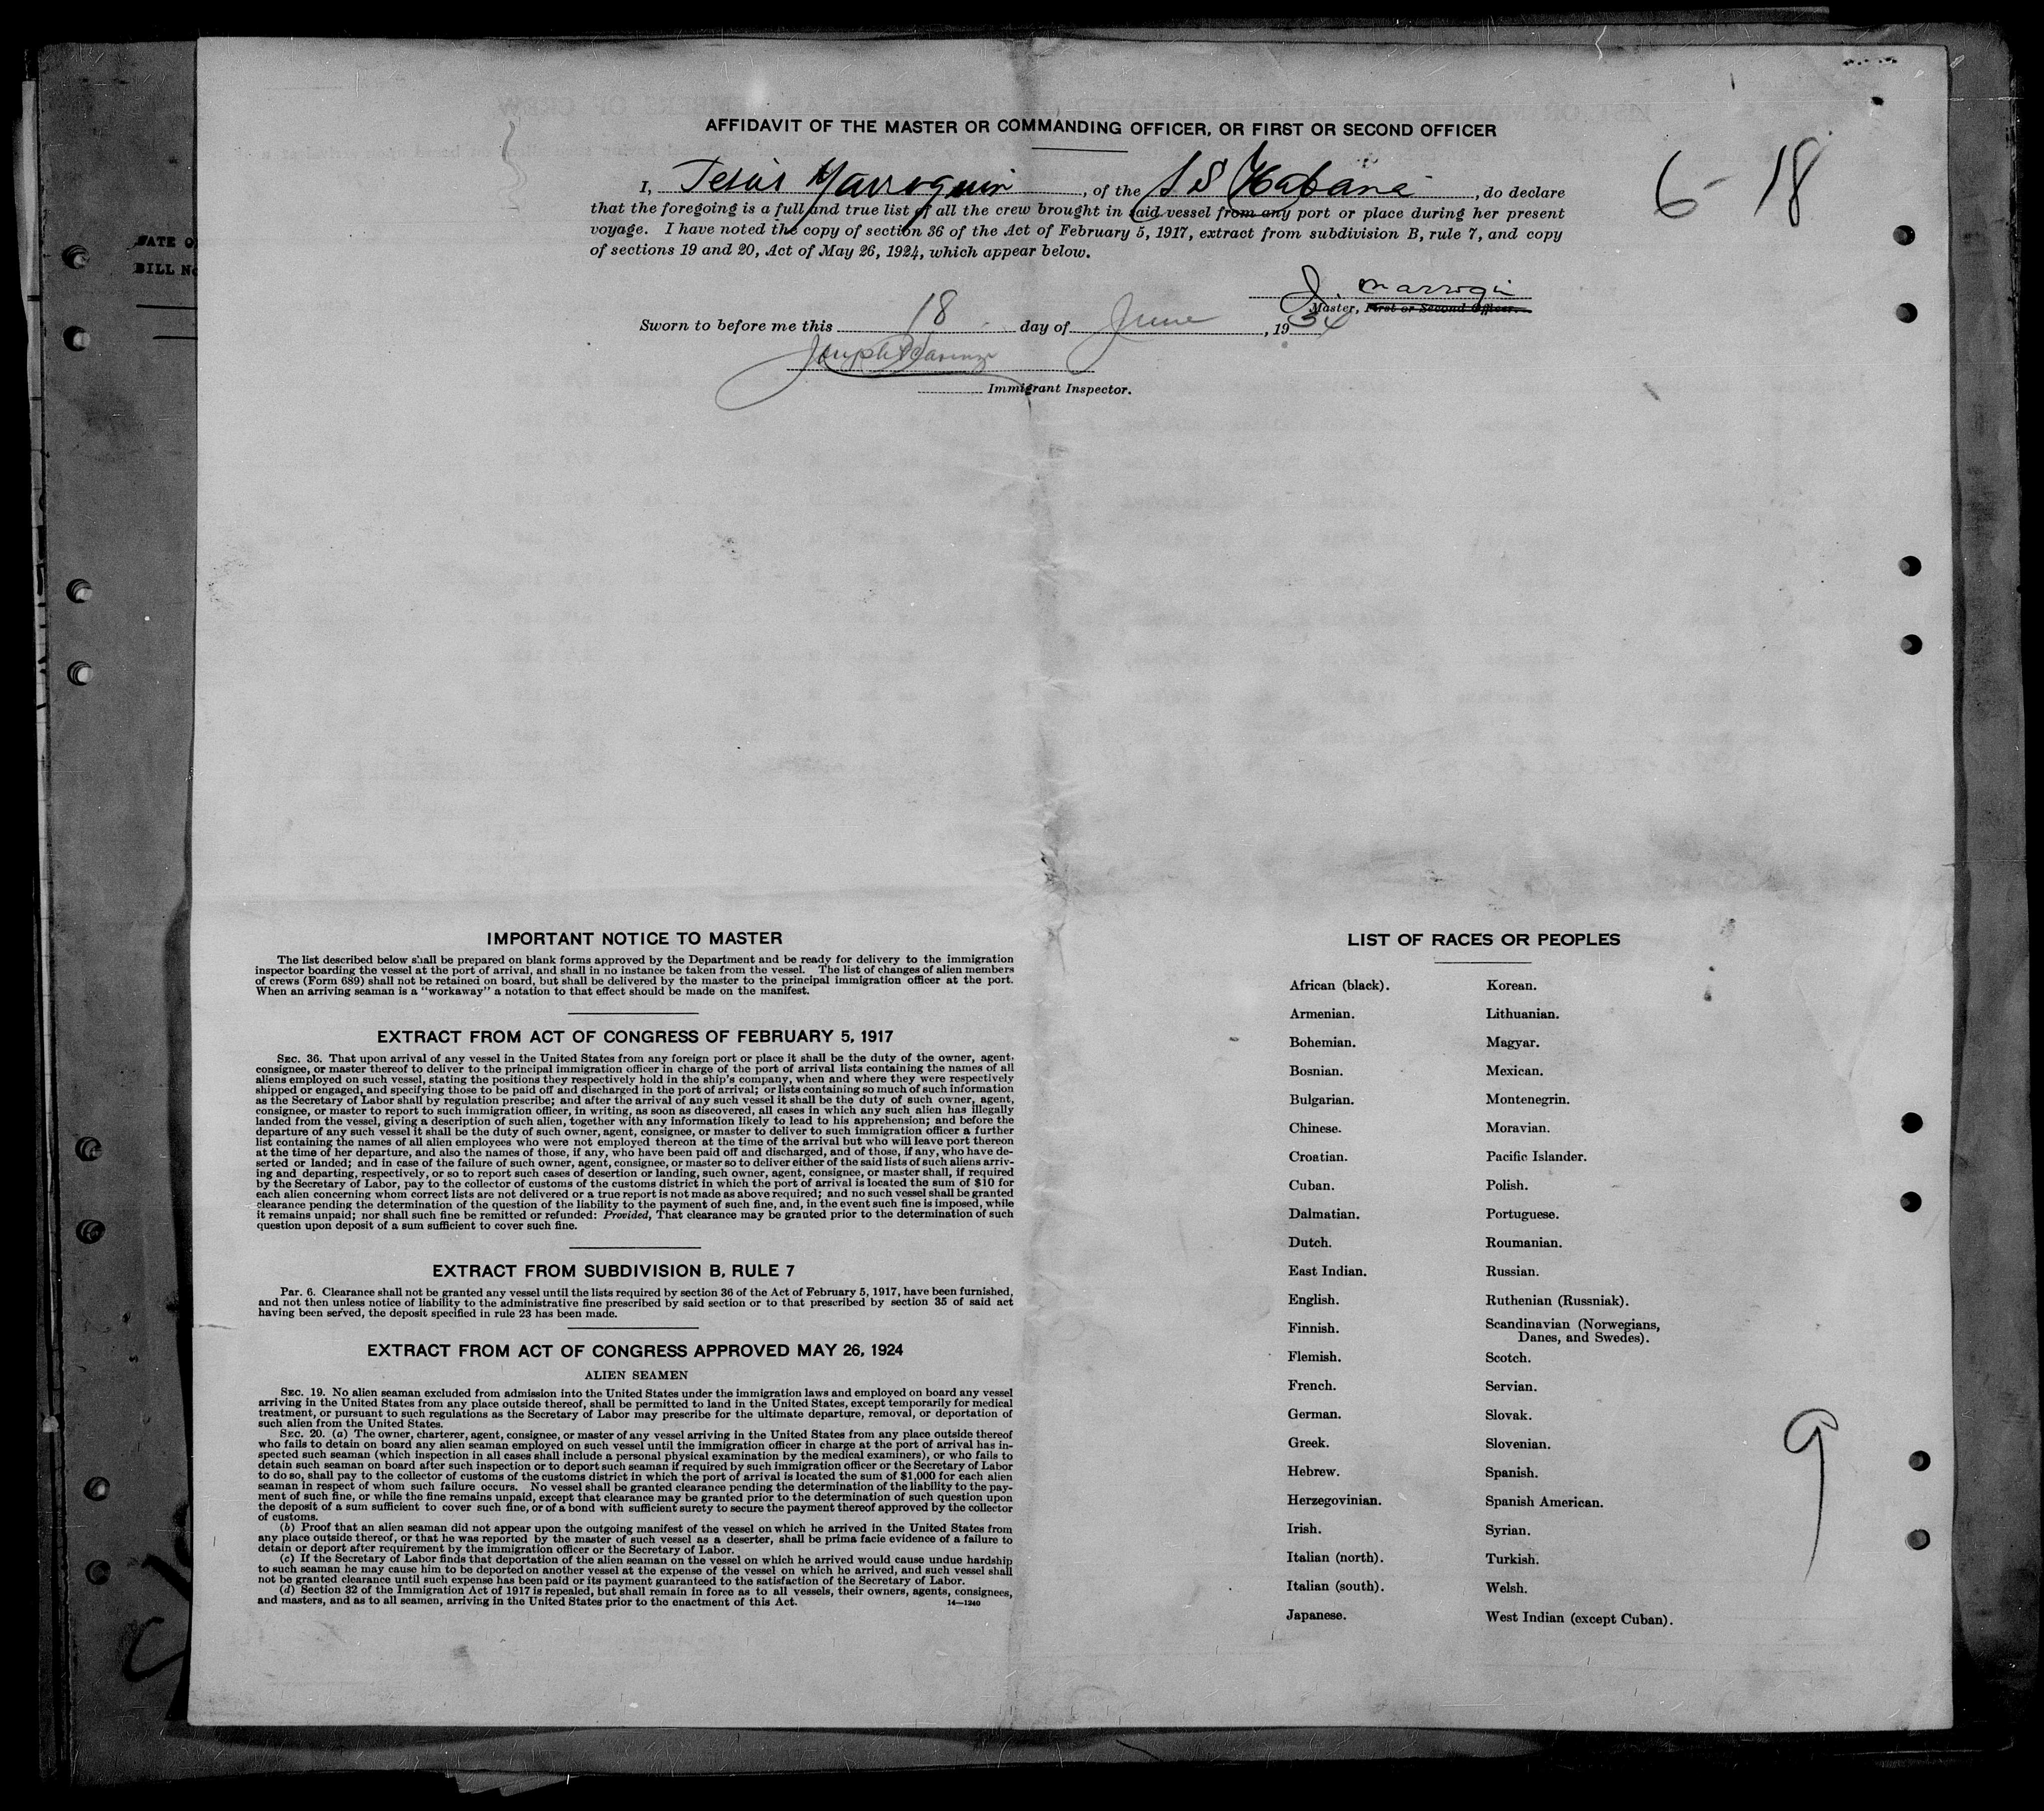 AFFIDAVIT OF THE MASTER OR COMMANDING OFFICER, OR FIRST OR SECOND OFFICER
I, Jesús Marroquin, of the S S Habana, do declare
that the foregoing is a full and true list of all the crew brought in said vessel from any port or place during her present
voyage. I have noted the copy of section 36 of the Act of February 5, 1917, extract from subdivision B, rule 7, and copy
of sections 19 and 20, Act of May 26, 1924, which appear below.
6-18
J. Marroqin
Master, First or Second Officer.
Sworn to before me this 18 day of June, 1934
Joseph
Immigrant Inspector.
DATE O
BILL No
IMPORTANT NOTICE TO MASTER
The list described below shall be prepared on blank forms approved by the Department and be ready for delivery to the immigration
inspector boarding the vessel at the port of arrival, and shall in no instance be taken from the vessel. The list of changes of alien members
of crews (Form 689) shall not be retained on board, but shall be delivered by the master to the principal immigration officer at the port.
When an arriving seaman is a "workaway" a notation to that effect should be made on the manifest.
EXTRACT FROM ACT OF CONGRESS OF FEBRUARY 5, 1917
SEC. 36. That upon arrival of any vessel in the United States from any foreign port or place it shall be the duty of the owner, agent,
consignee, or master thereof to deliver to the principal immigration officer in charge of the port of arrival lists containing the names of all
aliens employed on such vessel, stating the positions they respectively hold in the ship's company, when and where they were respectively
shipped or engaged, and specifying those to be paid off and discharged in the port of arrival; or lists containing so much of such information
as the Secretary of Labor shall by regulation prescribe; and after the arrival of any such vessel it shall be the duty of such owner, agent,
consignee, or master to report to such immigration officer, in writing, as soon as discovered, all cases in which any such alien has illegally
landed from the vessel, giving a description of such alien, together with any information likely to lead to his apprehension; and before the
departure of any such vessel it shall be the duty of such owner, agent, consignee, or master to deliver to such immigration officer a further
list containing the names of all alien employees who were not employed thereon at the time of the arrival but who will leave port thereon
at the time of her departure, and also the names of those, if any, who have been paid off and discharged, and of those, if any, who have de-
serted or landed; and in case of the failure of such owner, agent, consignee, or master so to deliver either of the said lists of such aliens arriv-
ing and departing, respectively, or so to report such cases of desertion or landing, such owner, agent, consignee, or master shall, if required
by the Secretary of Labor, pay to the collector of customs of the customs district in which the port of arrival is located the sum of $10 for
each alien concerning whom correct lists are not delivered or a true report is not made as above required; and no such vessel shall be granted
clearance pending the determination of the question of the liability to the payment of such fine, and, in the event such fine is imposed, while
it remains unpaid; nor shall such fine be remitted or refunded: Provided, That clearance may be granted prior to the determination of such
question upon deposit of a sum sufficient to cover such fine.
EXTRACT FROM SUBDIVISION B, RULE 7
Par. 6. Clearance shall not be granted any vessel until the lists required by section 36 of the Act of February 5, 1917, have been furnished,
and not then unless notice of liability to the administrative fine prescribed by said section or to that prescribed by section 35 of said act
having been served, the deposit specified in rule 23 has been made.
EXTRACT FROM ACT OF CONGRESS APPROVED MAY 26, 1924
ALIEN SEAMEN
SEC. 19. No alien seaman excluded from admission into the United States under the immigration laws and employed on board any vessel
arriving in the United States from any place outside thereof, shall be permitted to land in the United States, except temporarily for medical
treatment, or pursuant to such regulations as the Secretary of Labor may prescribe for the ultimate departure, removal, or deportation of
such alien from the United States.
SEC. 20. (a) The owner, charterer, agent, consignee, or master of any vessel arriving in the United States from any place outside thereof
who fails to detain on board any alien seaman employed on such vessel until the immigration officer in charge at the port of arrival has in-
spected such seaman (which inspection in all cases shall include a personal physical examination by the medical examiners), or who fails to
detain such seaman on board after such inspection or to deport such seaman if required by such immigration officer or the Secretary of Labor
to do so, shall pay to the collector of customs of the customs district in which the port of arrival is located the sum of $1,000 for each alien
seaman in respect of whom such failure occurs. No vessel shall be granted clearance pending the determination of the liability to the pay-
ment of such fine, or while the fine remains unpaid, except that clearance may be granted prior to the determination of such question upon
the deposit of a sum sufficient to cover such fine, or of a bond with sufficient surety to secure the payment thereof approved by the collector
of customs.
(b) Proof that an alien seaman did not appear upon the outgoing manifest of the vessel on which he arrived in the United States from
any place outside thereof, or that he was reported by the master of such vessel as a deserter, shall be prima facie evidence of a failure to
detain or deport after requirement by the immigration officer or the Secretary of Labor.
(c) If the Secretary of Labor finds that deportation of the alien seaman on the vessel on which he arrived would cause undue hardship
to such seaman he may cause him to be deported on another vessel at the expense of the vessel on which he arrived, and such vessel shall
not be granted clearance until such expense has been paid or its payment guaranteed to the satisfaction of the Secretary of Labor.
(d) Section 32 of the Immigration Act of 1917 is repealed, but shall remain in force as to all vessels, their owners, agents, consignees,
and masters, and as to all seamen, arriving in the United States prior to the enactment of this Act.
14—1240
LIST OF RACES OR PEOPLES
African (black).
Armenian.
Bohemian.
Bosnian.
Bulgarian.
Chinese.
Croatian.
Cuban.
Dalmatian.
Dutch.
East Indian.
English.
Finnish.
Flemish.
French.
German.
Greek.
Hebrew.
Herzegovinian.
Irish.
Italian (north).
Italian (south).
Japanese.
Korean.
Lithuanian.
Magyar.
Mexican.
Montenegrin.
Moravian.
Pacific Islander.
Polish.
Portuguese.
Roumanian.
Russian.
Ruthenian (Russniak).
Scandinavian (Norwegians,
Danes, and Swedes).
Scotch.
Servian.
Slovak.
Slovenian.
Spanish.
Spanish American.
Syrian.
Turkish.
Welsh.
West Indian (except Cuban).
9